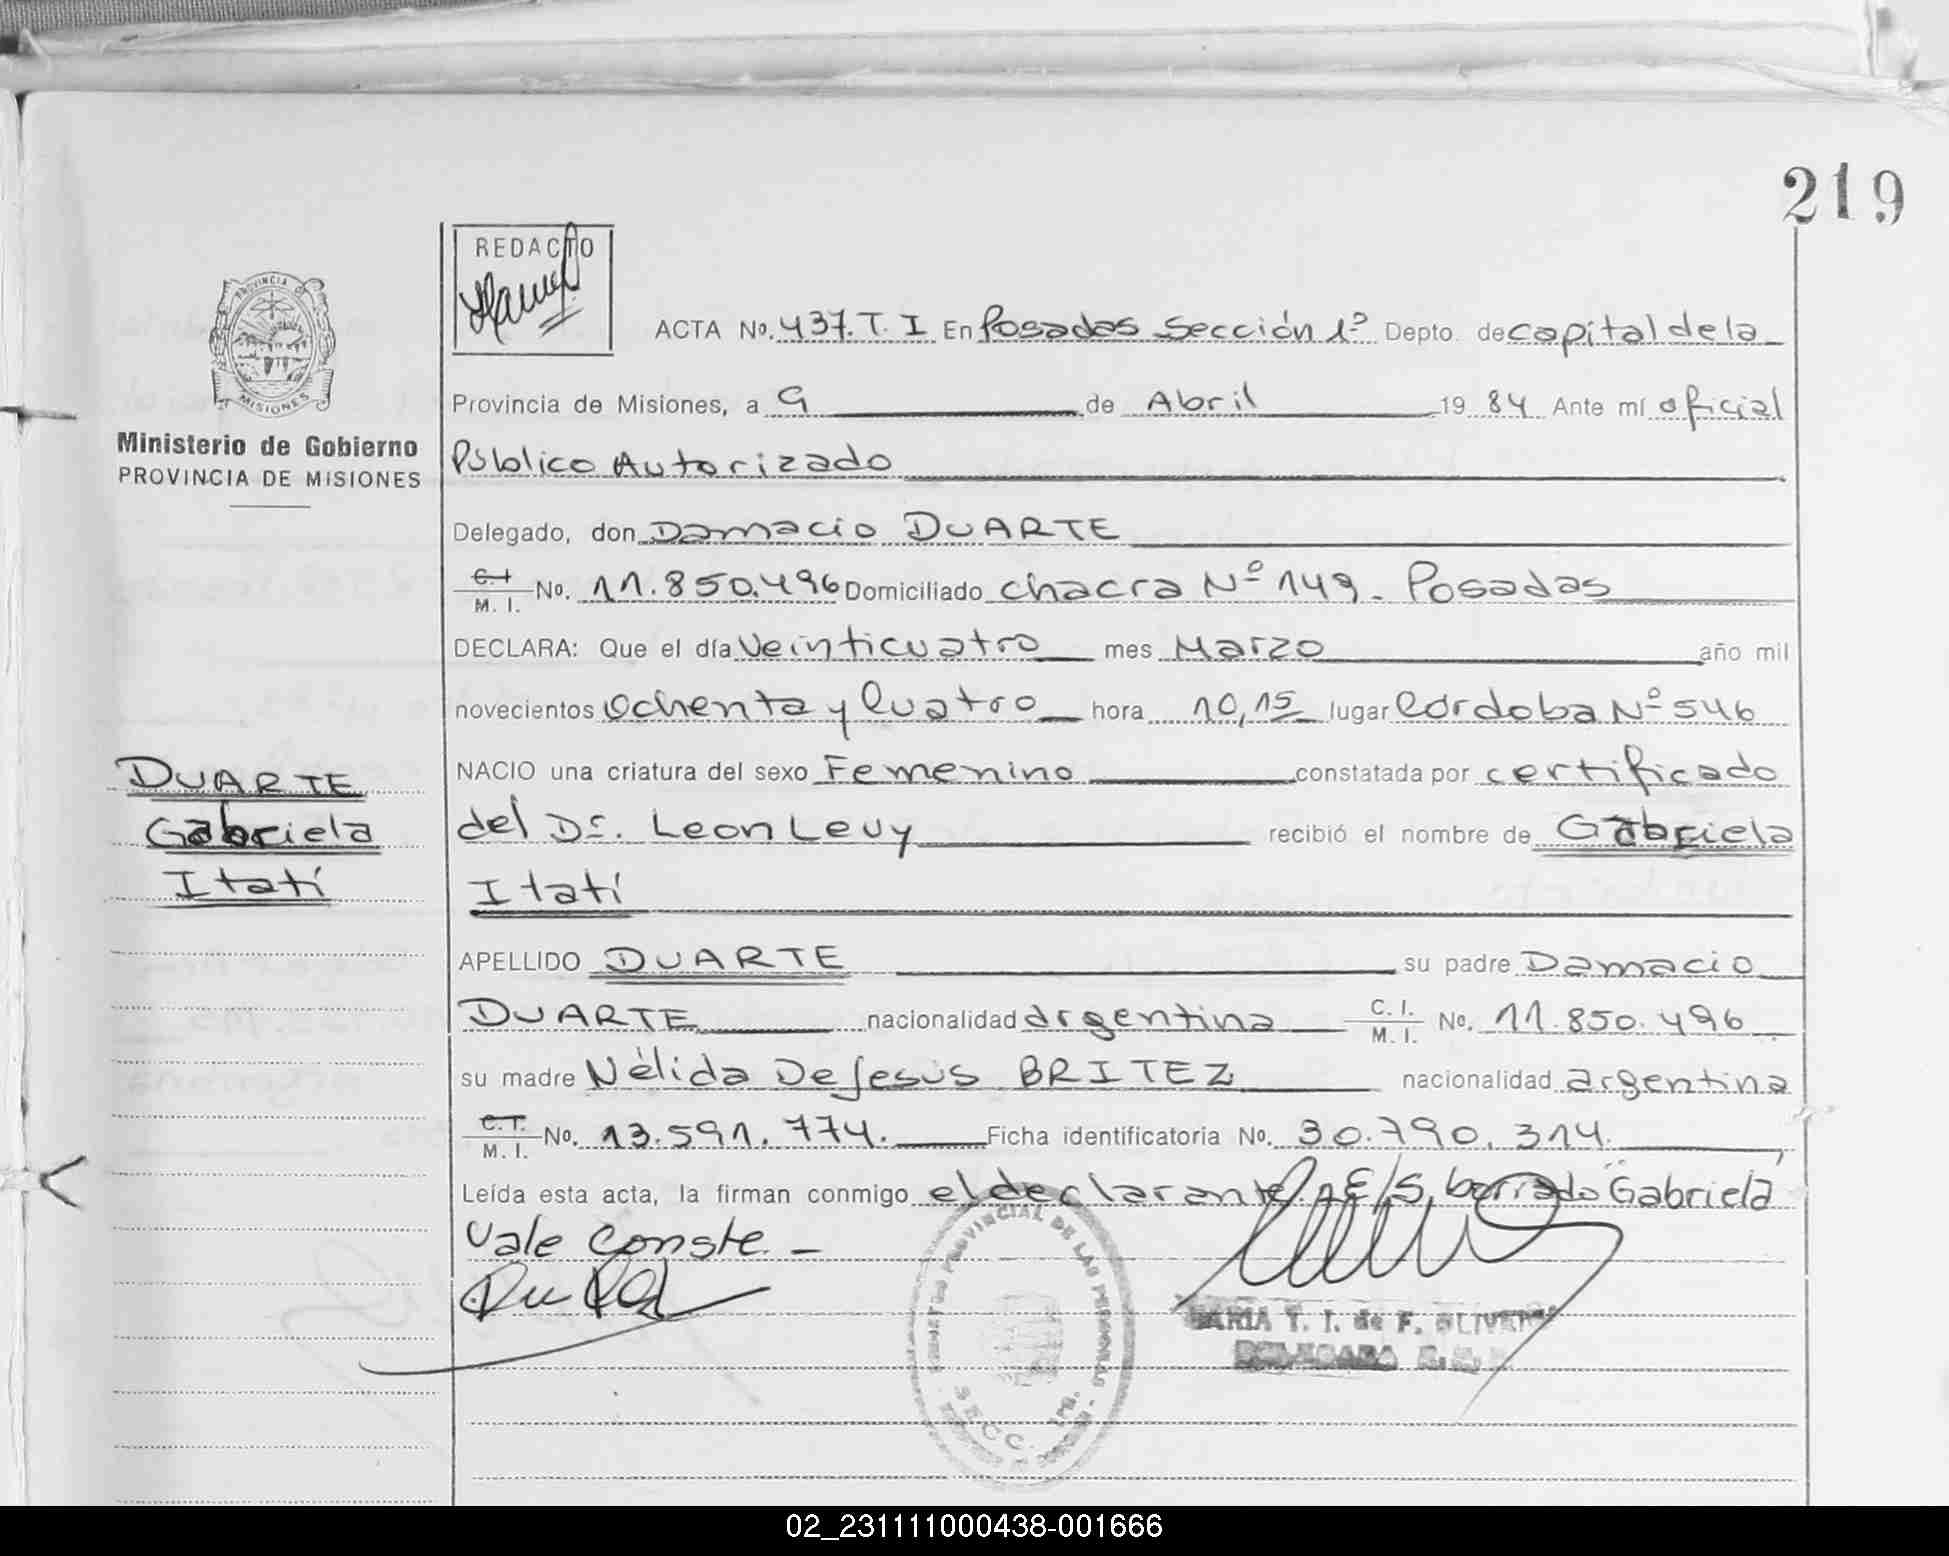 219
REDACTO
ACTA No. 437.T.I En Posadas Sección 1º Depto. de capital de la
PROVINCIA DE
MISIONES
Provincia de Misiones, a 9 de Abril 19 84 Ante mí oficial
Ministerio de Gobierno
PROVINCIA DE MISIONES
Público Autorizado
Delegado, don Damacio DUARTE
C.I M. I. No. 11.850.496 Domiciliado chacra Nº 149. Posadas
DECLARA: Que el día Veinticuatro mes Marzo año mil
novecientos Ochenta y Cuatro hora 10,15 lugar Córdoba Nº 546
NACIO una criatura del sexo Femenino constatada por certificado
DUARTE
Gabriela
Itatí
del Dr. Leon Levy recibió el nombre de Gabriela
Itatí
APELLIDO DUARTE su padre Damacio
DUARTE nacionalidad argentina C. I. M. I. No. 11.850.496
su madre Nélida De Jesús BRITEZ nacionalidad argentina
C.I. M. I. No. 13.591.774. Ficha identificatoria No. 30.790.314.
Leída esta acta, la firman conmigo el declarante. E/S. borrado "Gabriela"
Vale Conste. -
PROVINCIAL DE LAS PERSONAS
SECC. 1RA.
MARIA T. I. de F. OLIVERA
DELEGADA
02_231111000438-001666